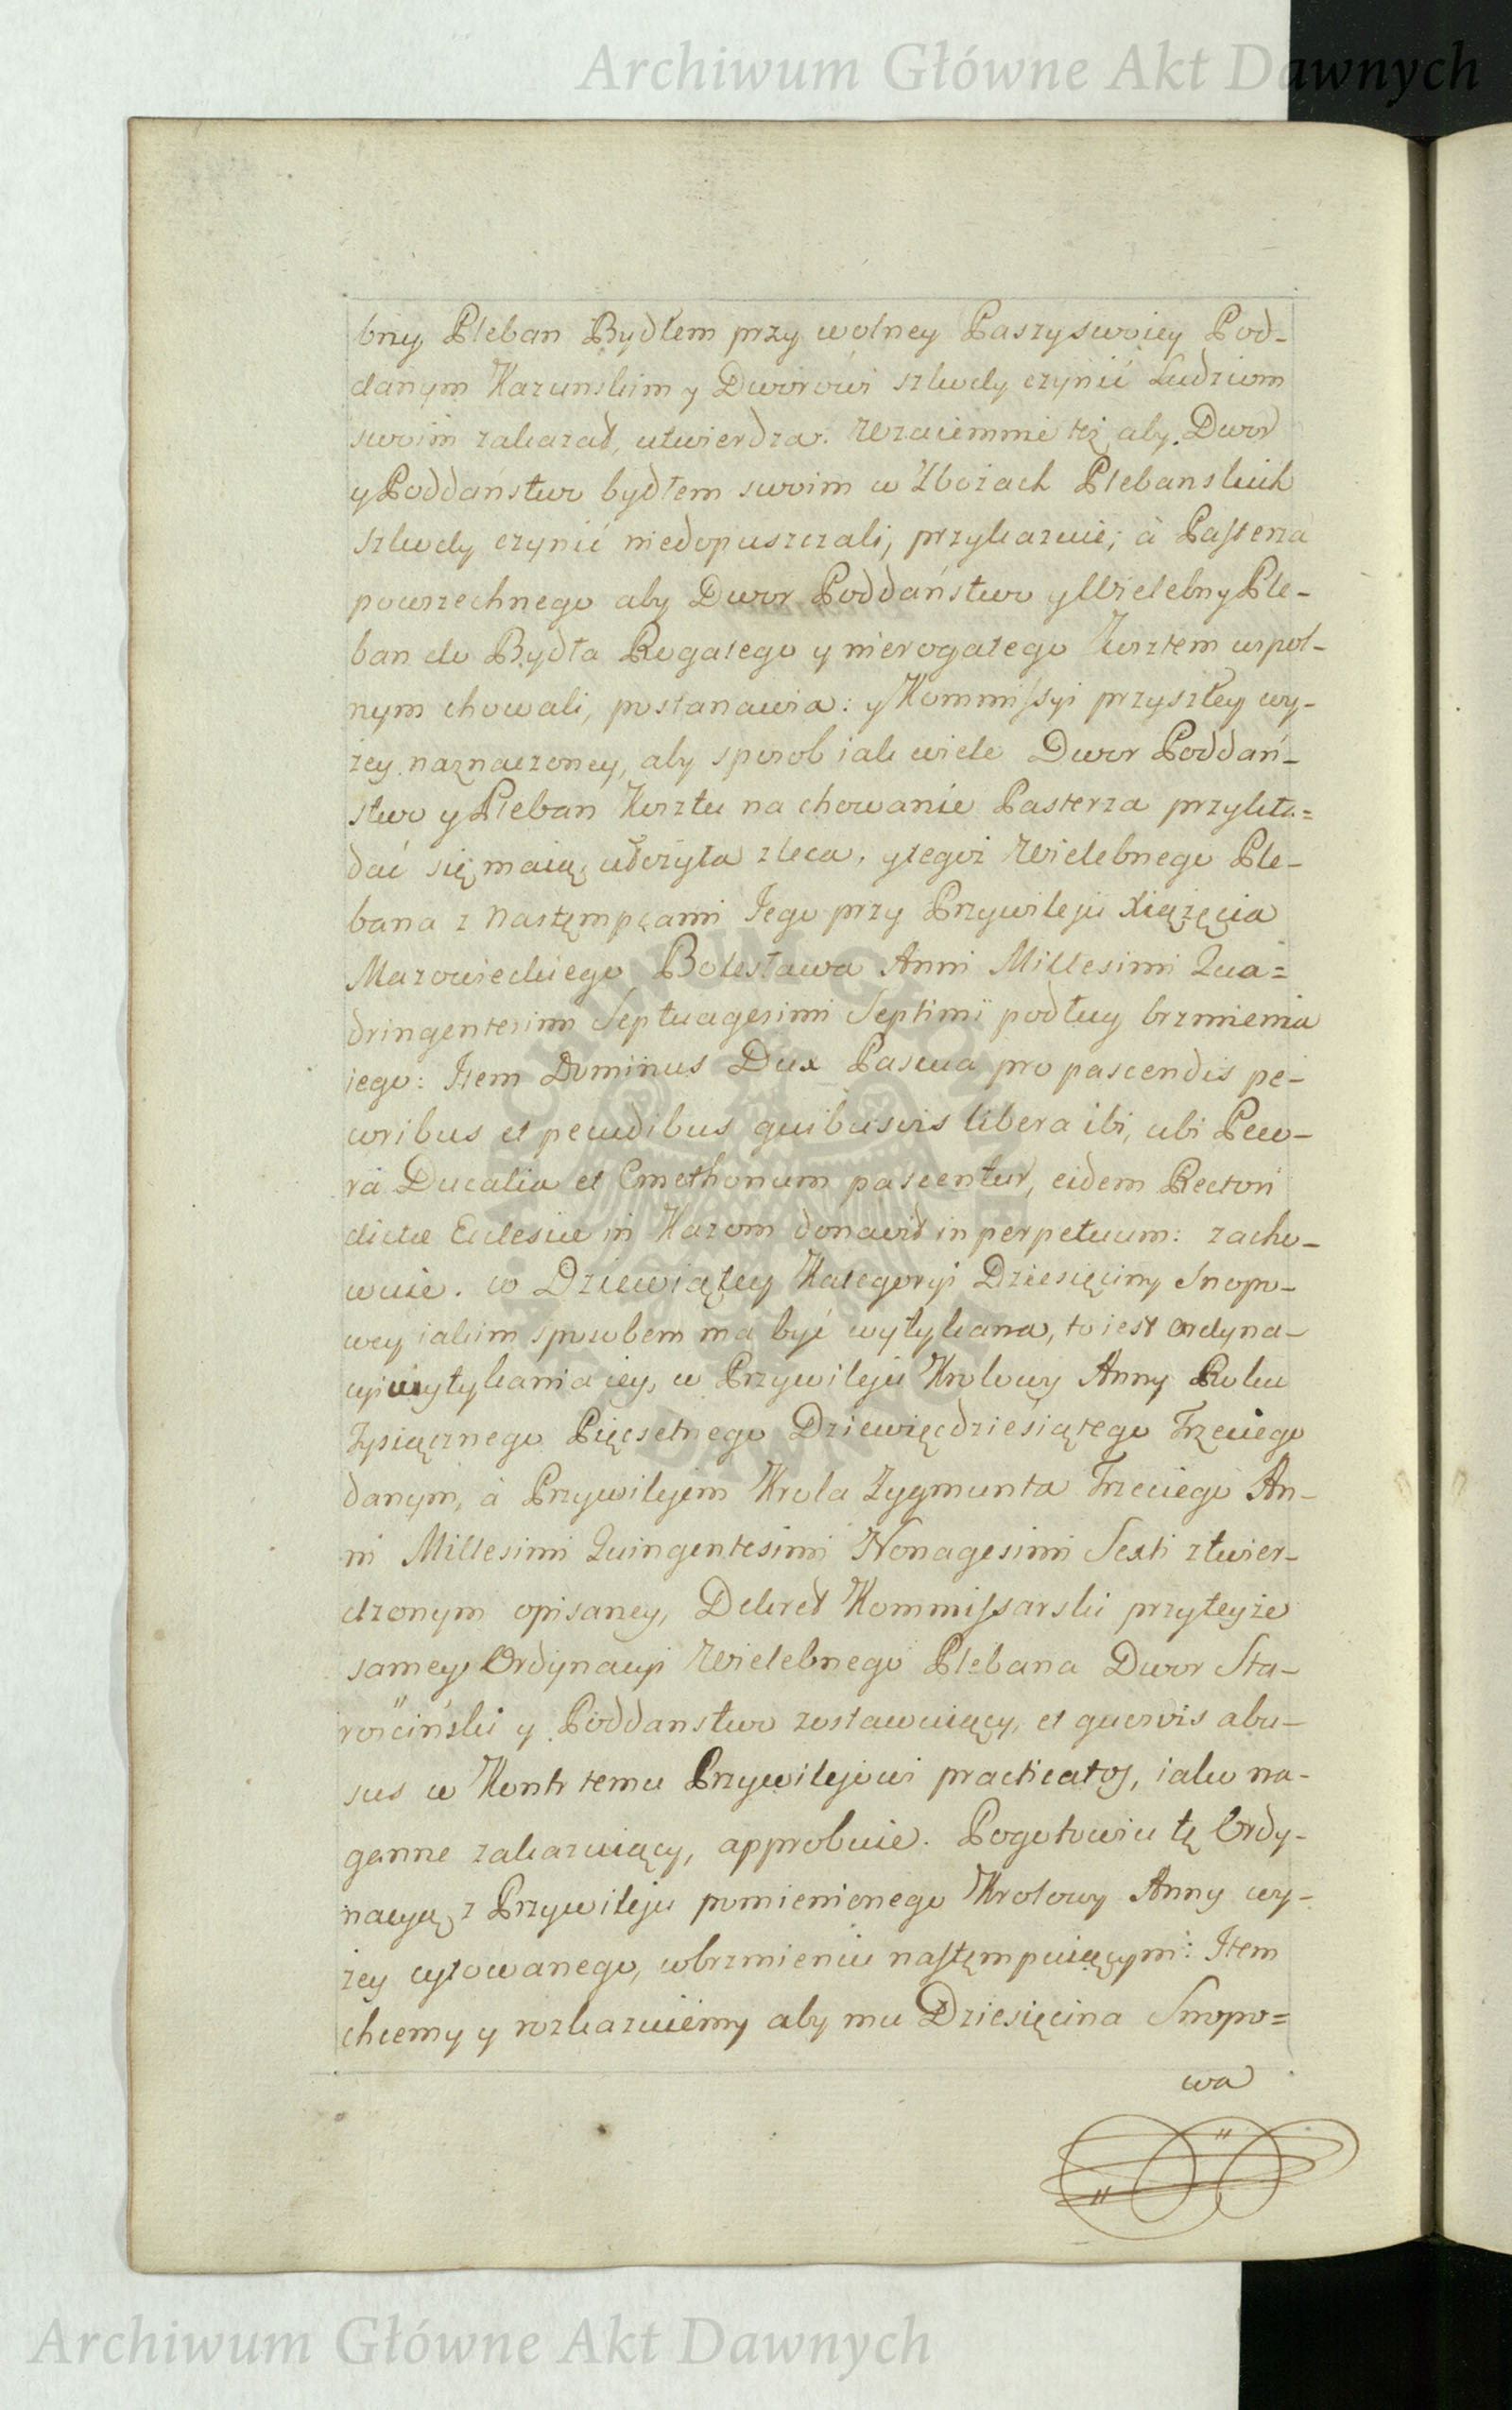 Archiwum Główne Akt Dawnych
bny Pleban Bydłem przy wolney Paszy swoiey Pod-
danym Kazunskim y Dworowi szkody czynić Ludziom
swoim zakazał, utwierdza. Wzaiemnie też aby Dwor
y Poddaństwo bydłem swoim w Zbożach Plebanskich
szkody czynić niedopuszczali, przykazuie; à Pasterza
powszechnego aby Dwor Poddaństwo y Wielebny Ple-
ban do Bydła Rogatego y nierogatego Kosztem wspol-
nym chowali, postanawia: y Kommissyi przyszłey wy-
żey naznaczoney, aby sposob iak wiele Dwor Poddań-
stwo y Pleban Kosztu na chowanie Pasterza przykła=
dać się maią, ułożyła zleca, y tegoż Wielebnego Ple-
bana z Następcami Jego przy Przywileju Xiążęcia
Mazowieckiego Bolesława Anni Millesimi Qua=
dringentesimi Septuagesimi Septimi podług brzmienia
iego: Item Dominus Dux Pascua pro pascendis pe-
coribus et pecudibus quibusvis libera ibi, ubi Peco-
ra Ducalia et Cmethonum pascentur, eidem Rectori
dictæ Ecclesiæ in Kazom donavit in perpetuum: zacho-
wuie. w Dziewiątey Kategoryi Dziesięciny Snopo-
wey iakim sposobem ma być wytykana, to iest ordyna-
cyi wytykania iey, w Przywileju Krolowy Anny Roku
Tysiącznego Pięcsetnego Dziewięcdziesiątego Trzeciego
danym, à Przywilejem Krola Zygmunta Trzeciego An-
ni Millesimi Quingentesimi Nonagesimi Sexti ztwier-
dzonym opisaney, Dekret Kommissarski przy teyże
samey Ordynacyi Wielebnego Plebana Dwor Sta-
rościński y Poddanstwo zostawuiący, et quosvis abu-
sus w Kontr temu Przywilejowi practicatos, iako na-
ganne zakazuiący, approbuie. Pogotowiu tę Ordy-
nacyą z Przywileju pomienionego Krolowy Anny wy-
żey cytowanego, w brzmieniu następuiącym: Item
chcemy y rozkazuiemy aby mu Dziesięcina Snopo=
wa
Archiwum Główne Akt Dawnych